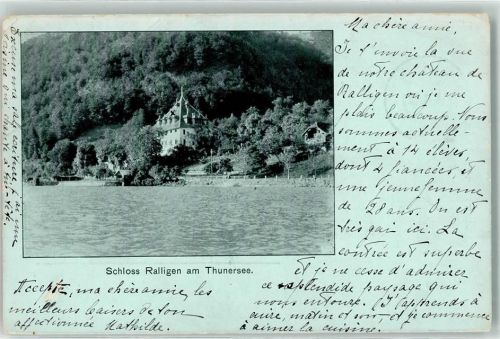 Ma chère amie,
Je t'envoie la vue
de notre château de
Ralligen où je me
plais beaucoup. Nous
sommes actuelle-
ment à 14 élèves,
dont 4 fiancées, et
une jeune femme
de 28 ans. On est
très gai ici. La
contrée est superbe
et je ne cesse d'admirer
ce splendide paysage qui
nous entoure. J'apprends à
cuire, matin et soir, et je commence
à aimer la cuisine.
Schloss Ralligen am Thunersee.
Accepte, ma chère amie, les
meilleurs baisers de ton
affectionnée Mathilde.